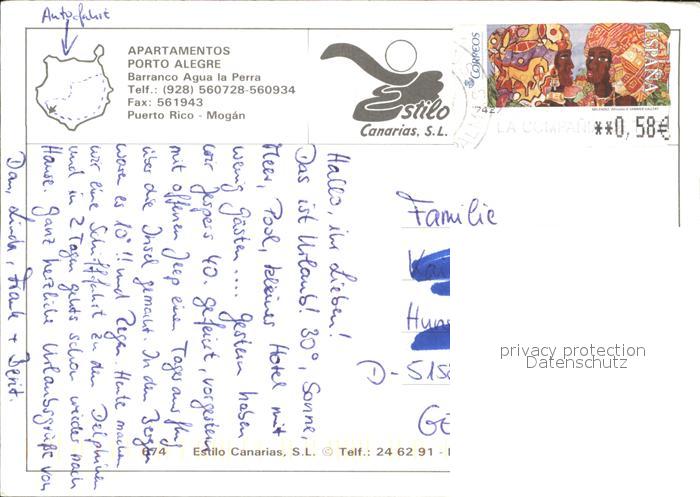 Autofahrt
APARTAMENTOS
PORTO ALEGRE
Barranco Agua la Perra
Telf.: (928) 560728-560934
Fax: 561943
Puerto Rico - Mogán
Estilo
Canarias, S.L.
CORREOS
ESPAÑA
7427
LA COMPAÑ
**0,58€
Hallo, ihr Lieben!
Das ist Urlaub! 30°, Sonne,
Meer, Pool, kleines Hotel mit
wenig Gästen.... Gestern haben
wir Jespers 40. gefeiert, vorgestern
mit offenen Jeep einen Tagesausflug
über die Insel gemacht. In den Bergen
waren es 10°!! und Regen. Heute machen
wir eine Schifffahrt zu den Delphinen
und in 2 Tagen gehts schon wieder nach
Hause. Ganz herzliche Urlaubsgrüße von
Dan, Linda, Frank + Berit.
Familie
D-515
GE
privacy protection
Datenschutz
674 Estilo Canarias, S.L. © Telf.: 24 62 91 -